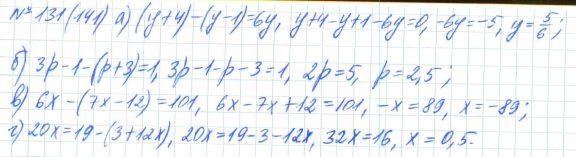 № 131(141) а) (y+4)-(y-1)=6y, y+4-y+1-6y=0, -6y=-5, y=5/6;
б) 3p-1-(p+3)=1, 3p-1-p-3=1, 2p=5, p=2,5;
в) 6x-(7x-12)=101, 6x-7x+12=101, -x=89, x=-89;
г) 20x=19-(3+12x), 20x=19-3-12x, 32x=16, x=0,5.